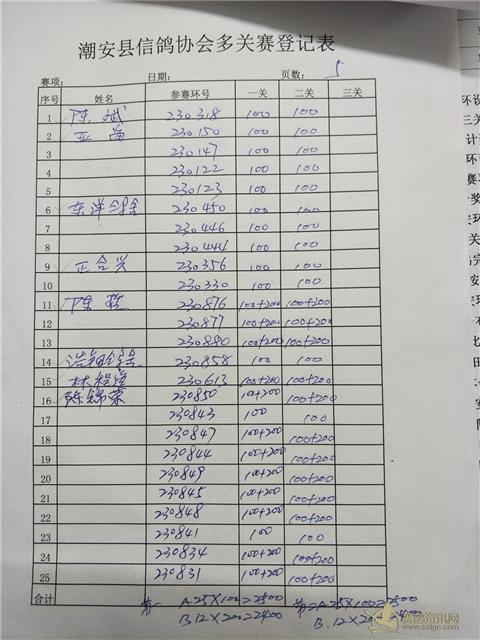 潮安县信鸽协会多关赛登记表
赛项: 日期: 页数: 5
序号 姓名 参赛环号 一关 二关 三关
1 陈斌 230318 100 100
2 230150 100 100
3 230147 100 100
4 230122 100 100
5 230123 100 100
6 东洋鸽舍 230450 100 100
7 230446 100 100
8 230444 100 100
9 正合兴 230356 100 100
10 230330 100 100
11 陈 230876 100+200 100+200
12 230877 100+200 100+200
13 230880 100+200 100+200
14 浩翔鸽舍 230858 100 100
15 林 230613 100+200 100+200
16 陈锦荣 230850 100+200 100+200
17 230843 100 100
18 230847 100+200 100+200
19 230844 100+200 100+200
20 230849 100+200 100+200
21 230845 100+200 100+200
22 230848 100+200 100+200
23 230841 100 100
24 230834 100+200 100+200
25 230831 100+200 100+200
合计 第一 A25×100=2500 第二A25×100=2500
B.12×200=2400 B.12×200=2400
赛鸽资讯网
www.saige.com